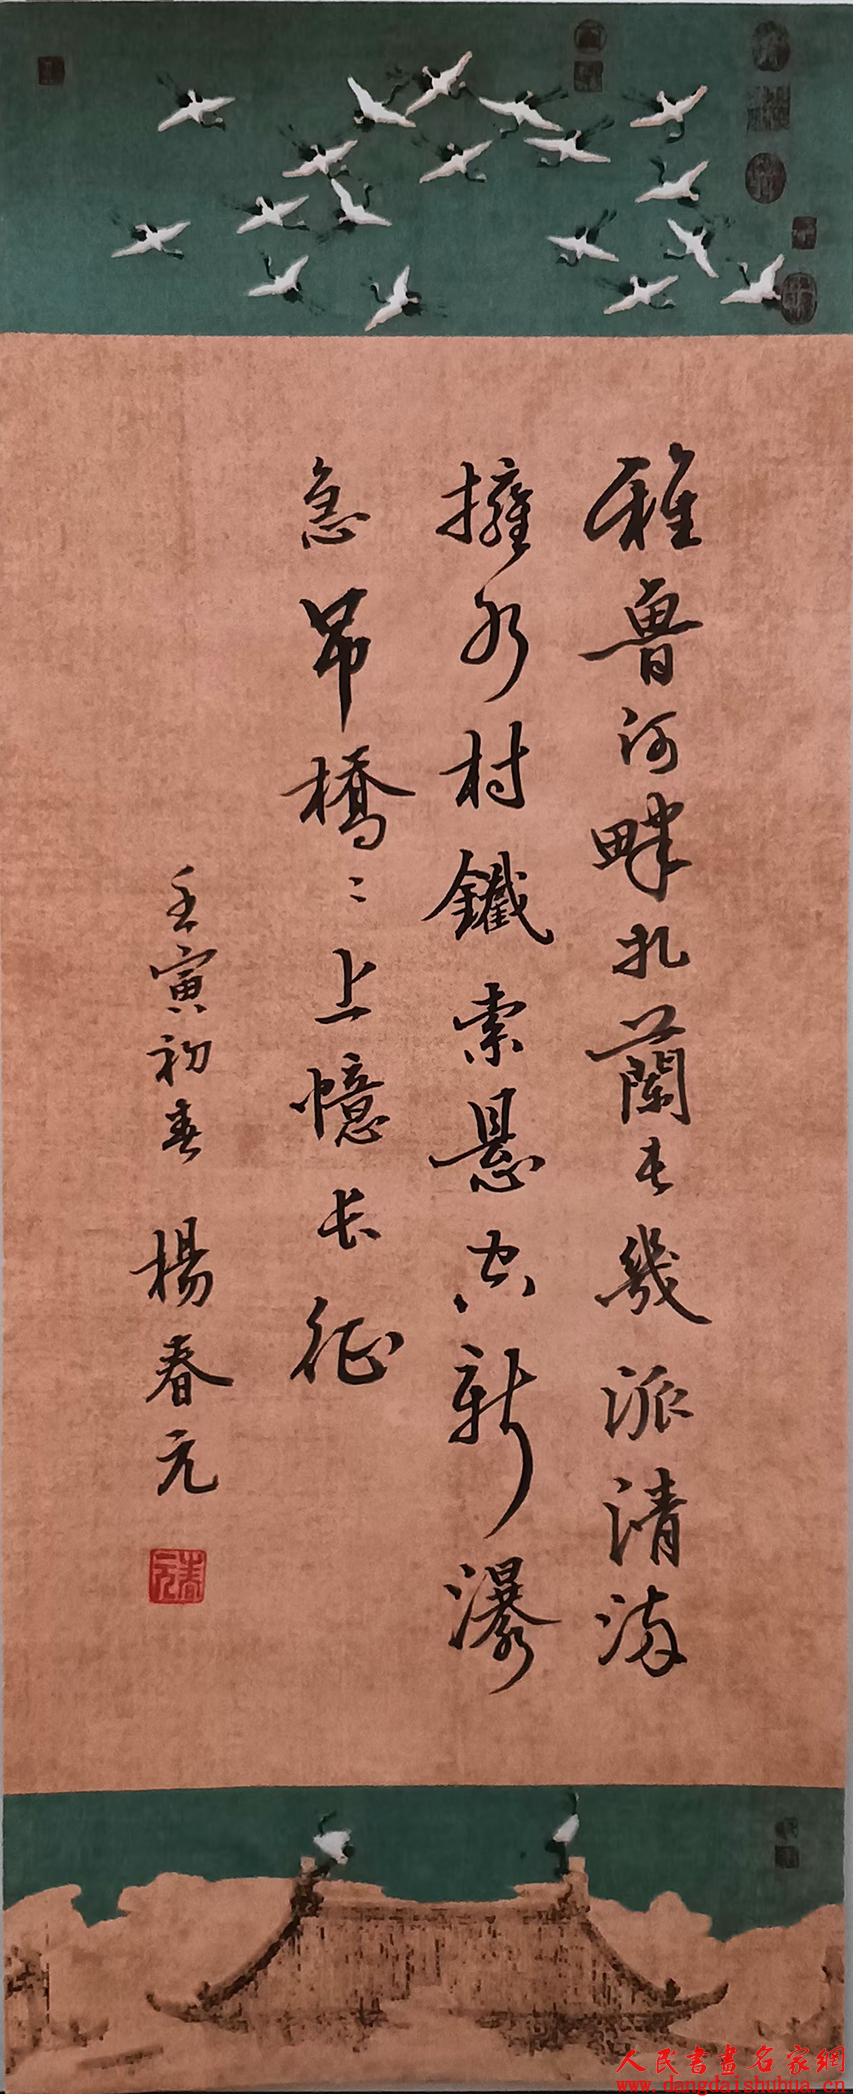 雅魯河畔扎蘭屯幾派清流
擁水村鐵索懸空新瀑
急吊橋々上憶长征
壬寅初春 楊春元
春元
人民書畫名家網
www.dangdaishuhua.cn